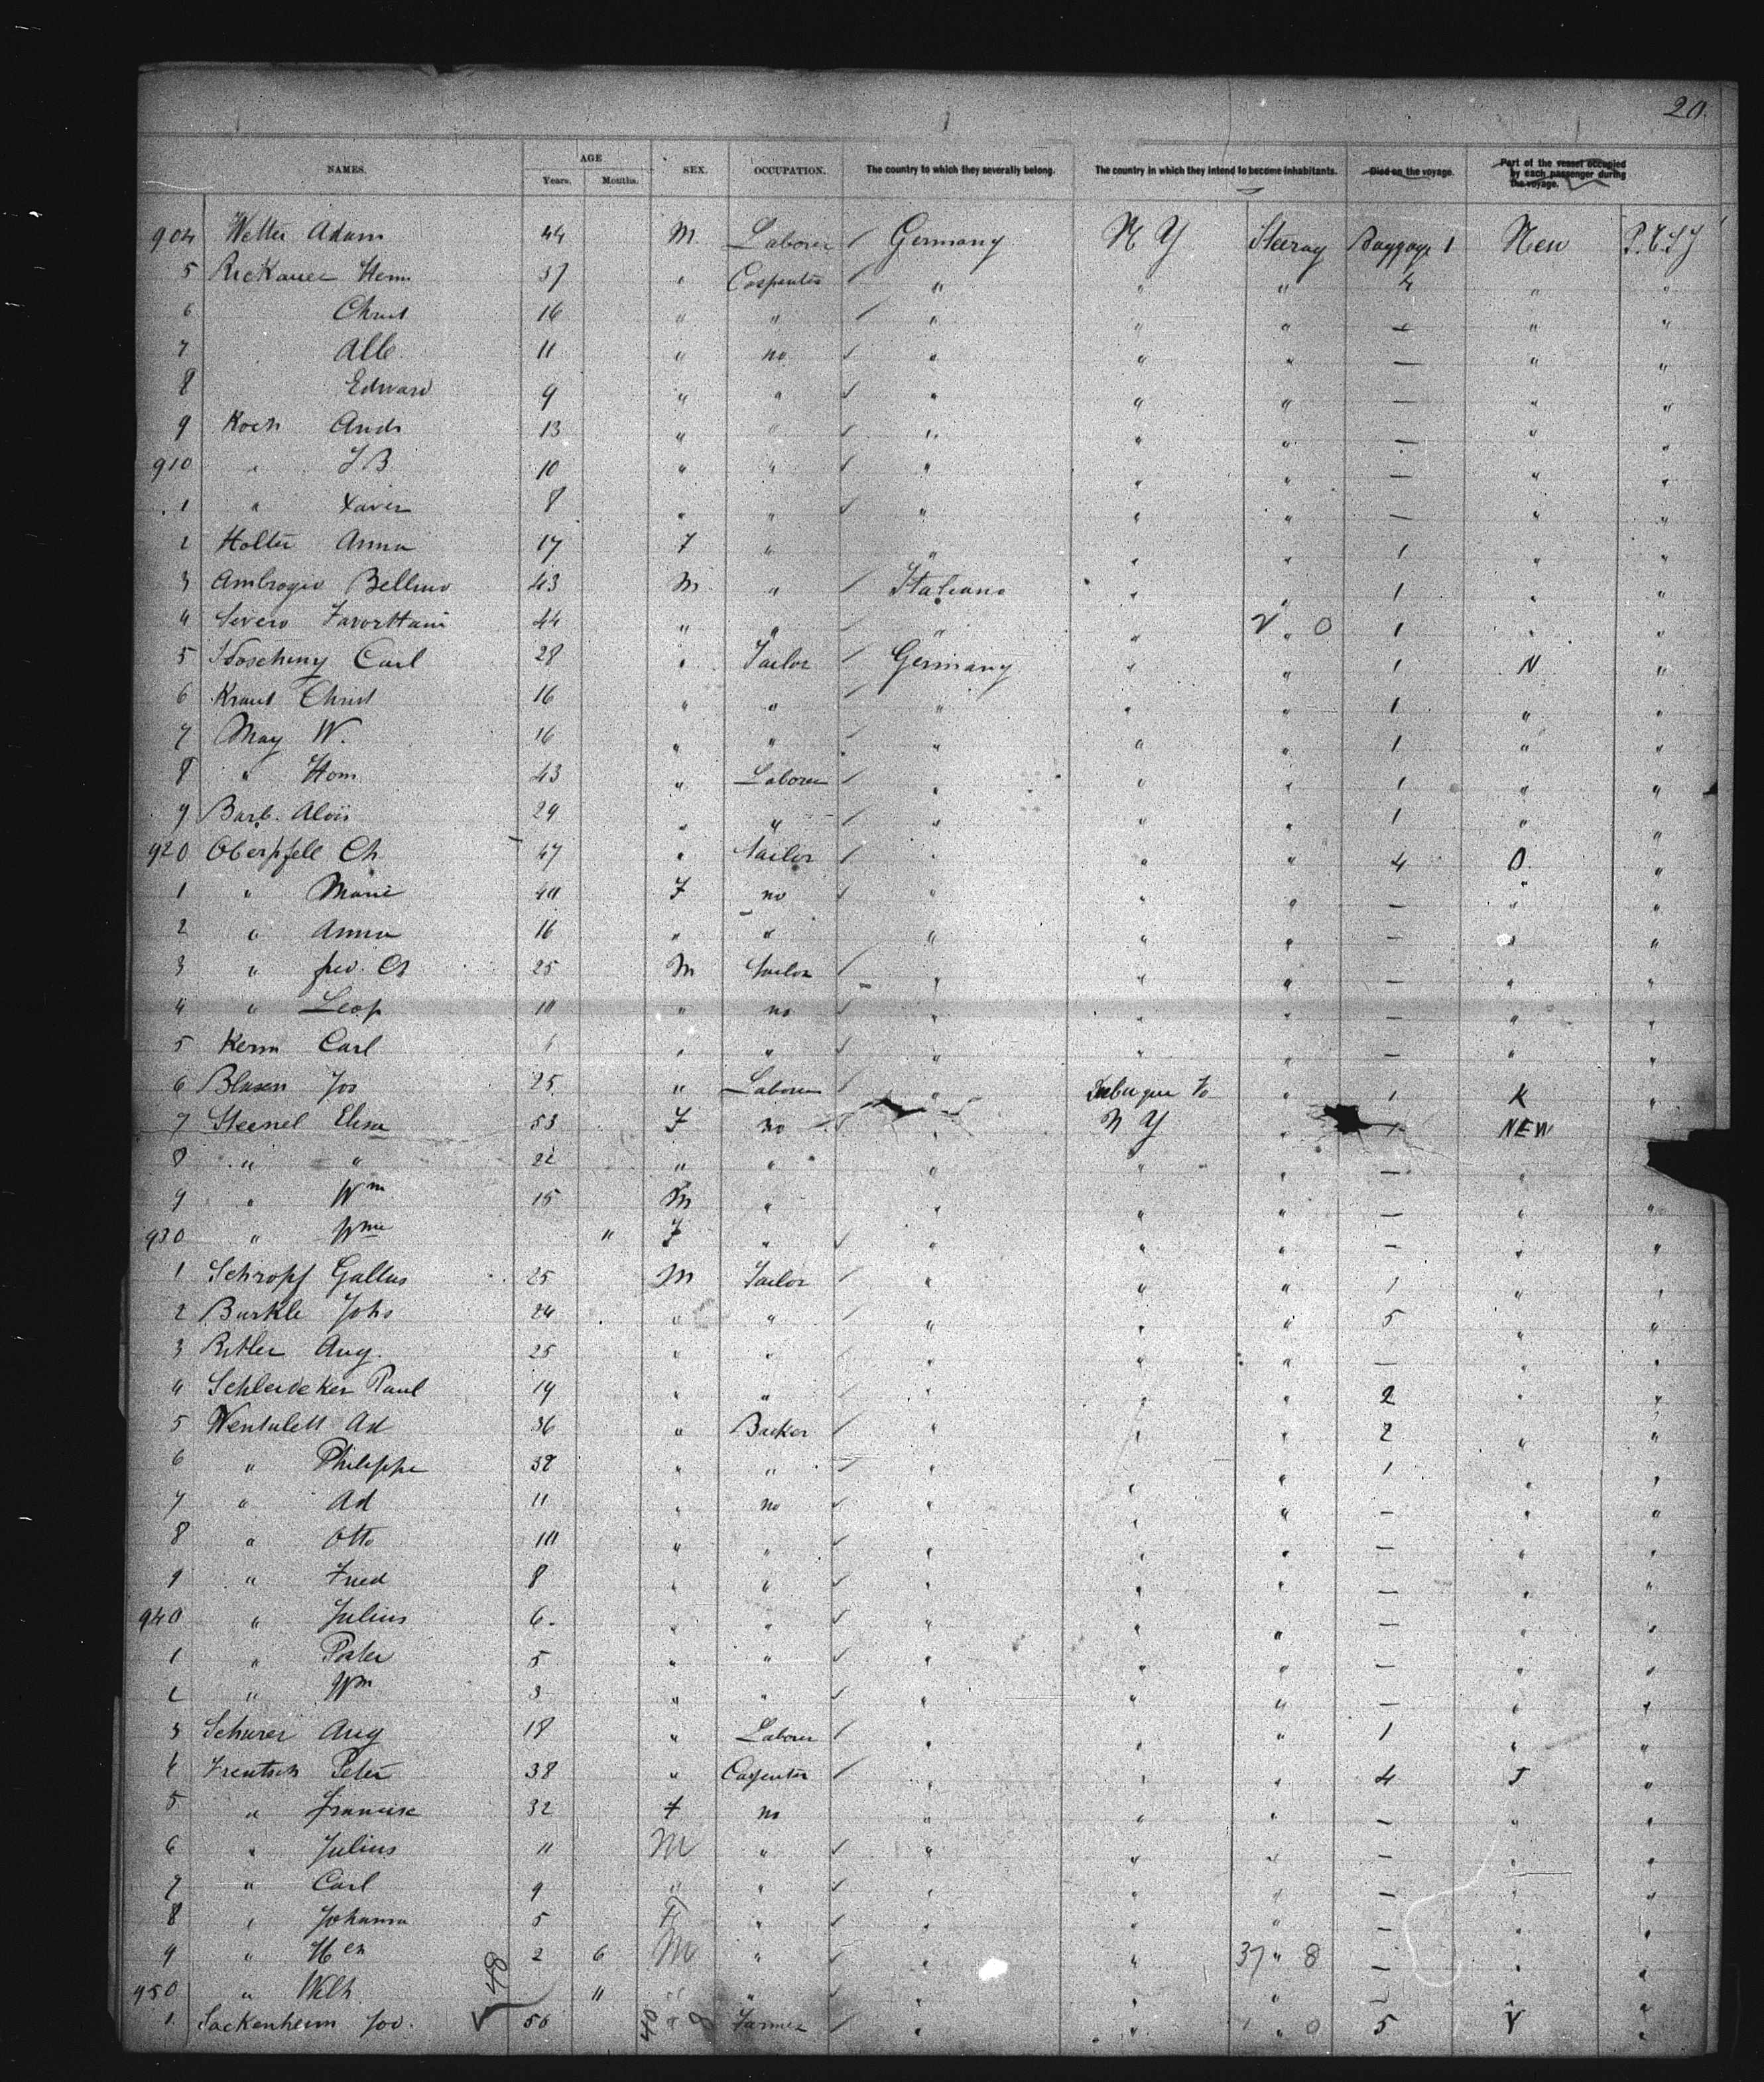 20.
NAMES. AGE Years. Months. SEX. OCCUPATION. The country to which they severally belong. The country in which they intend to become inhabitants. Died on the voyage. Part of the vessel occupied by each passenger during the voyage.
904 Welter Adam 44 M Laborer / Germany N Y Steerag Baggage 1 New
5 Rickauer Herm 37 " Carpenter / " " " 4 " "
6 Christ 16 " " / " " " — " "
7 Alb. 11 " no ✓ " " " — " "
8 Edward 9 " " ✓ " " " — " "
9 Koch Andr 13 " " ✓ " " " — " "
910 " J B 10 " " ✓ " " " — " "
1 " Xaver 8 " " ✓ " " " — " "
2 Holter Anna 17 F " " " " 1 " "
3 Ambrogio Bellino 43 M " / Italiano " " 1 " "
4 Severo 44 " " / " " " 0 1 " "
5 Carl 28 " Tailor / Germany " " 1 N "
6 Kraus Christ 16 " " / " " " 1 " "
7 May W. 16 " " / " " " 1 " "
8 " Hom 43 " Laborer / " " " 1 " "
9 Barb. Alois 29 " " / " " " 1 " "
920 Oberpfell Ch 47 " Tailor / " " " 4 O "
1 " Marie 40 F no ✓ " " " — " "
2 " Anna 16 " " " " " — " "
3 " Ch 25 M Tailor / " " " — " "
4 " Leop 10 " no ✓ " " " — " "
5 Kern Carl " " ✓ " " " — " "
6 Blasen Jos 25 " Laborer / " Dubuque Io " 1 K "
7 Steenel Elisa 53 F no " N Y " 1 NEW
8 " " 22 " " " " " — "
9 " Wm 15 M " " " " — " "
930 " Wme " F " ✓ " " " — " "
1 Schropf Gallus 25 M Tailor / " " " 1 " "
2 Burkle Johs 24 " " / " " " 5 " "
3 Ritler Aug. 25 " " / " " " — " "
4 Schleideker Paul 19 " " / " " " 2 " "
5 Wentulett Ad 36 " Backer / " " " 2 " "
6 " Philippe 32 " " / " " " 1 " "
7 " Ad 11 " no ✓ " " " — " "
8 " Otto 10 " " ✓ " " " — " "
9 " Fried 8 " " ✓ " " " — " "
940 " Julius 6 " " ✓ " " " — " "
1 " Peter 5 " " ✓ " " " — " "
2 " Wm 3 " " ✓ " " " — " "
3 Schurer Aug 18 " Laborer / " " " 1 " "
4 Peter 38 " Carpenter / " " " 4 "
5 " Francisc 32 F no " " " — " "
6 " Julius 11 M " ✓ " " " — " "
7 " Carl 9 " " ✓ " " " — " "
8 " Johanna 5 F " ✓ " " " — " "
9 " Hen 2 6 M " ✓ " " 37 " 8 — " "
950 " Wilh 48 " " " " " " — " "
1 Sackenheim Jos. 56 40 Farmer / " " " 0 5 V "